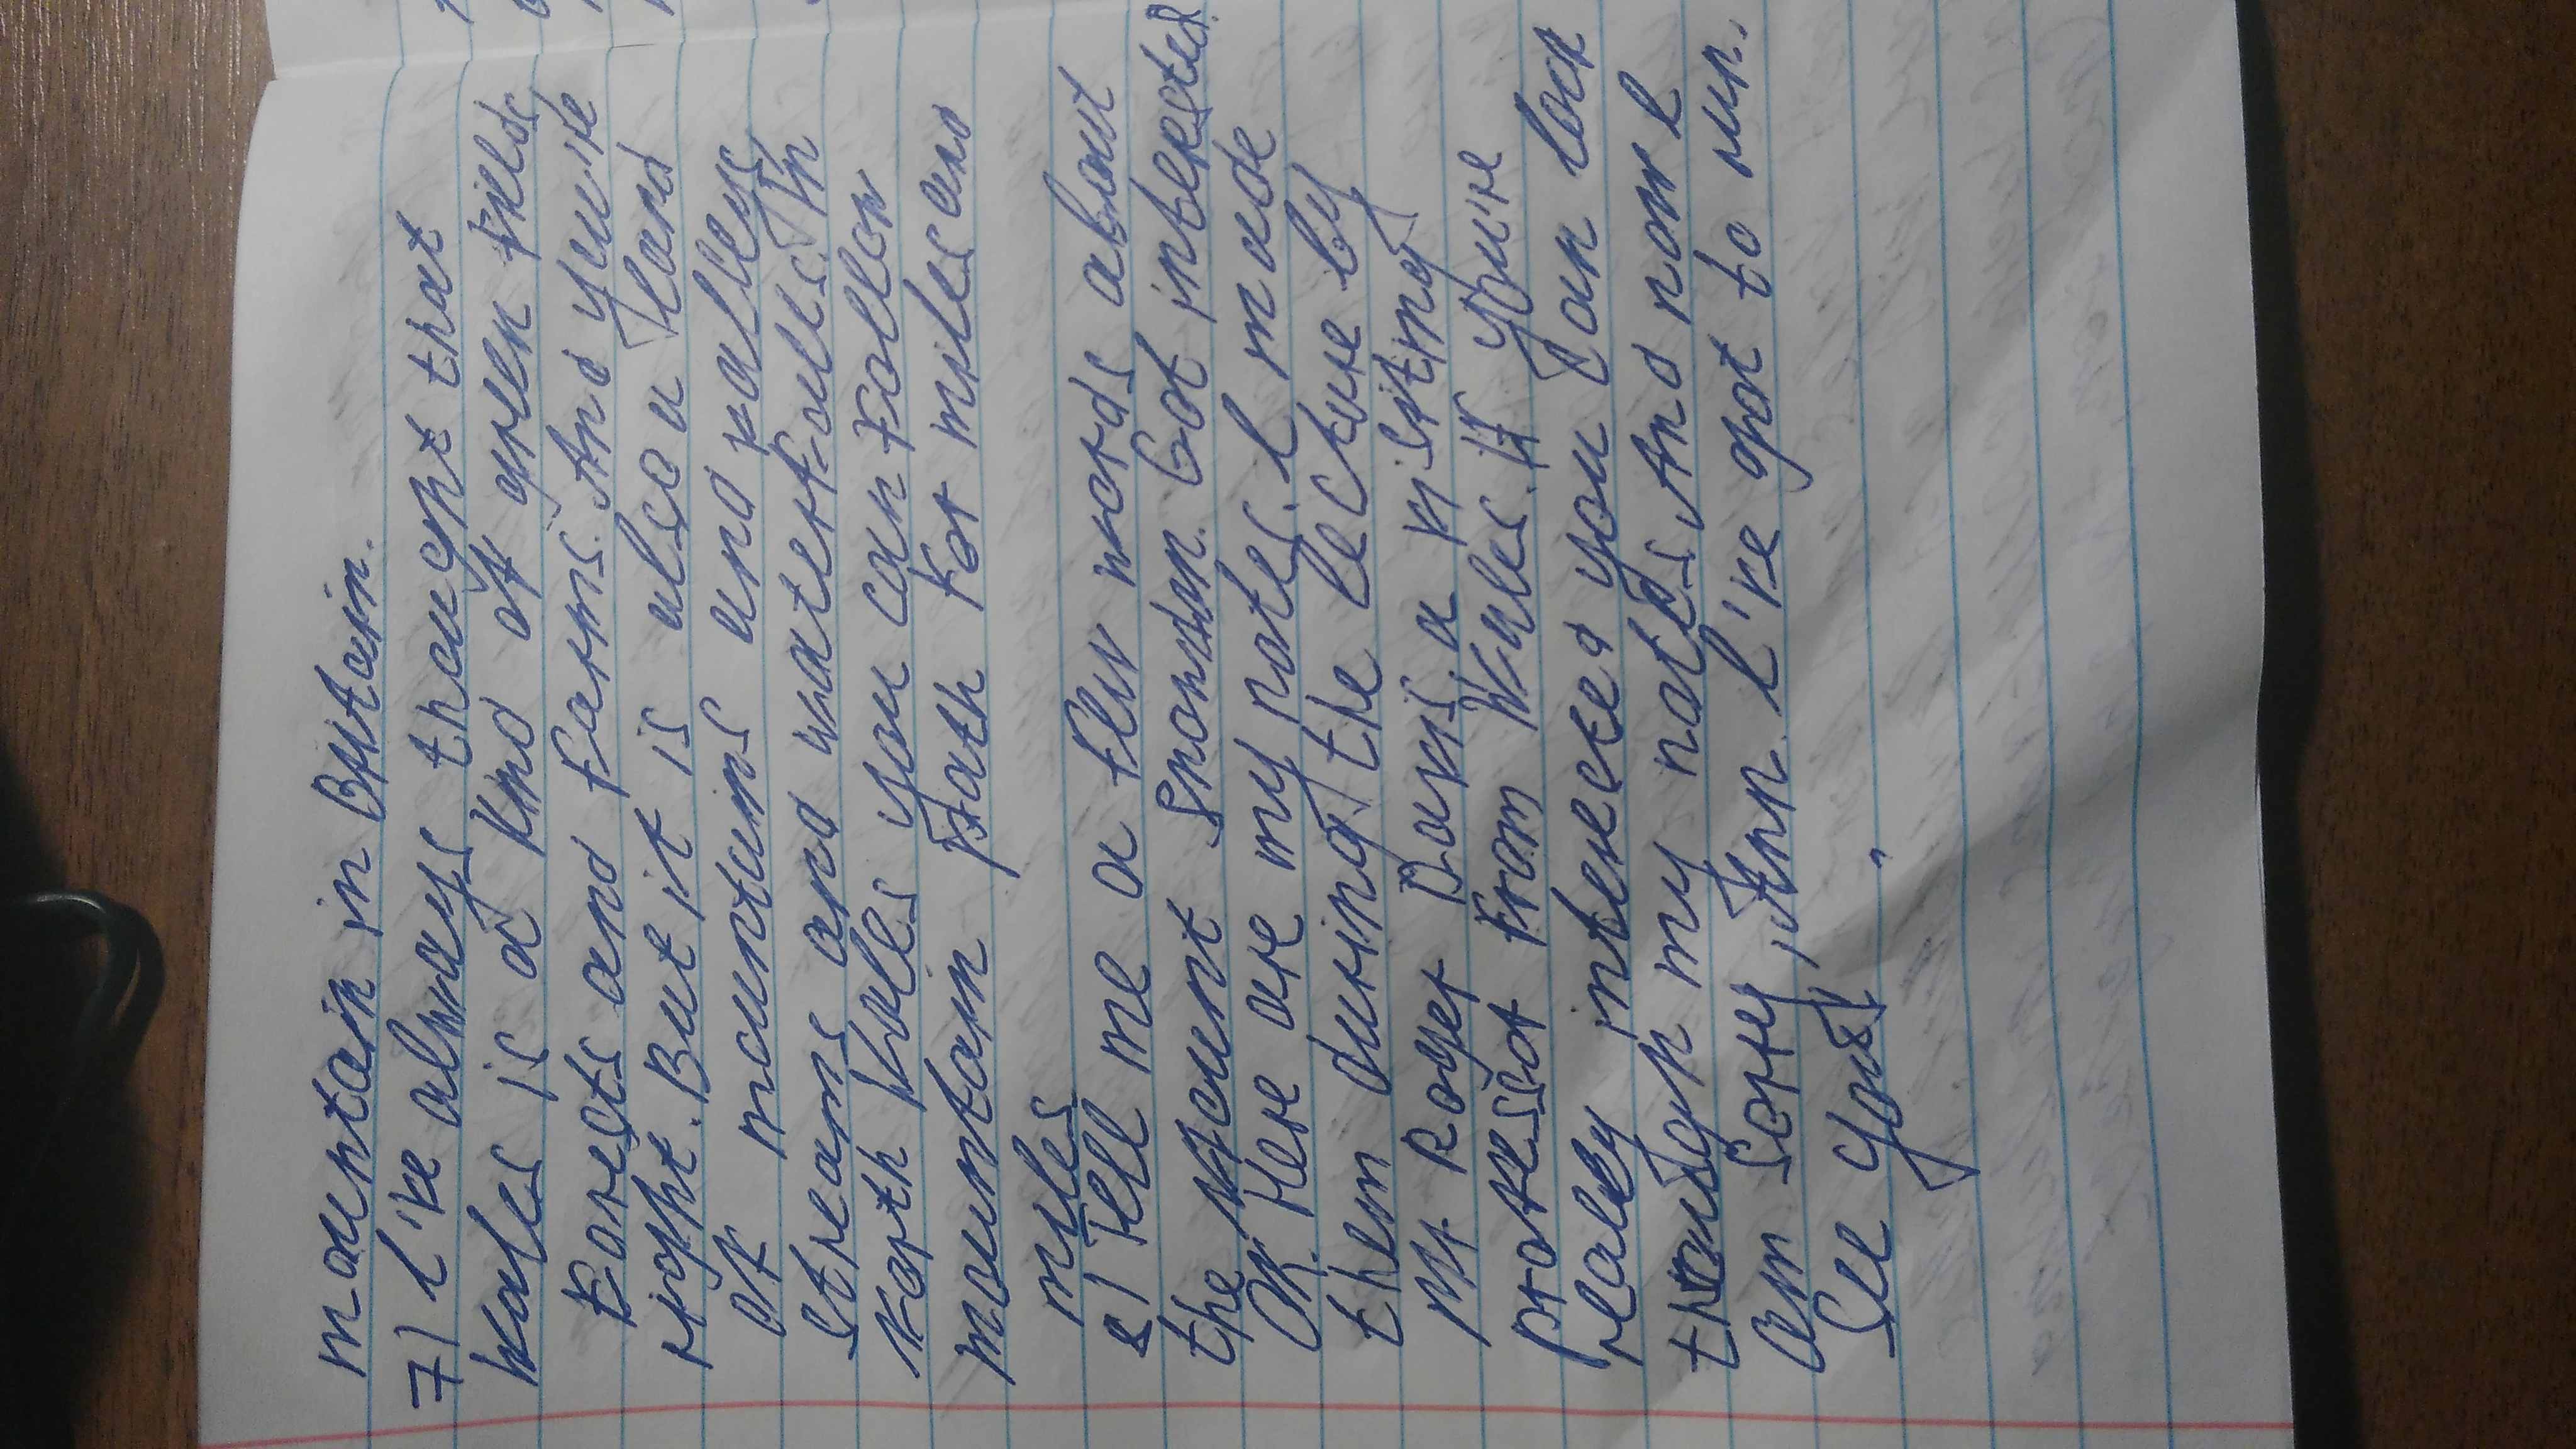 mountain in Britain.
7) I've always thought that
Wales is a kind of green fields
Forests and farms. And you're
right. But it is also a land
of mountains and valleys
streams and waterfalls. In
North Wales you can follow
mountain path for miles and
miles
8) Tell me a few words about
the mount Snowdon. Got interested.
OK. Here are my notes. I made
them during the lecture by
Mr Roger Davis, a visiting
professor from Wales. If you're
realey interected you can look
through my notes. And now I
am sorry, Ann. I've got to run.
See you!